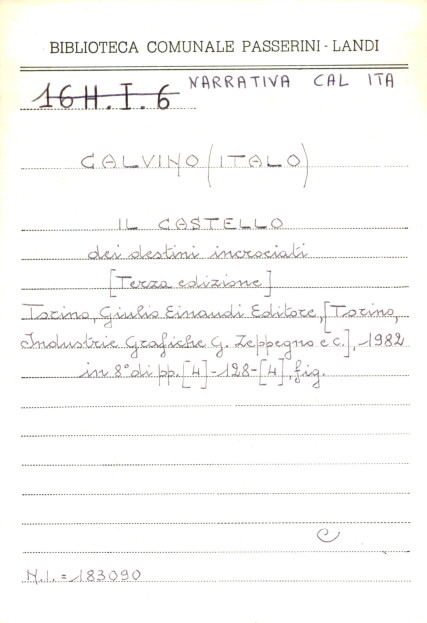 BIBLIOTECA COMUNALE PASSERINI - LANDI
16H.I.6 NARRATIVA CAL ITA
CALVINO (ITALO)
IL CASTELLO
dei destini incrociati
[Terza edizione]
Torino, Giulio Einaudi Editore, [Torino,
Industrie Grafiche G. Zeppegno e C.], 1982
in 8° di pp. [4]-128-[4], fig.
C
N.I. = 183090